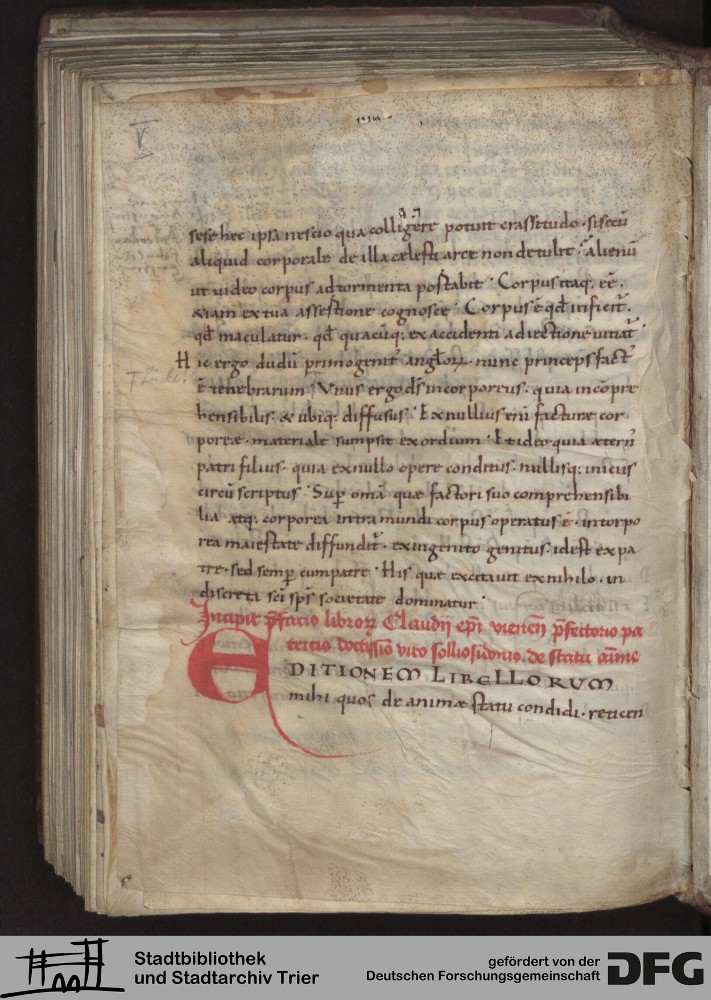 V
sese hec ipsa nescio qua colligere potuit crassitudo · si secū
aliquid corporale de illa cælesti arce non detulit · alienū
ut video corpus ad tormenta postabit · Corpus itaq; · eē ·
&iam ex tua assestione cognosce · Corpus ē qd̄ inficit᷑ ·
qd̄ maculatur · qd̄ quacūq; ex accidenti adiectione uitiat᷑
Hic ergo dudū primogenit᷒ angl̄oꝝ · nunc princeps fact᷒
ē tenebrarum · Vnus ergo ds̄ incorporeus · quia incōpre
hensibilis · & ubiq; diffusus · Ex nullius eni᷑ facturæ cor
poreæ · materiale sumpsit exordium · Et ideo quia ætern᷒
patri filius · quia ex nullo opere conditus · nullisq; inicus
circū scriptus · Sup̄ omā quæ factori suo comprehensibi
lia atq; corporea intra mundi corpus operatus ē · incorpo
rea maiestate diffundit᷑ · ex ingenito genitus · idest ex pa
tre · sed semp̄ cum patre · His quæ excitauit ex nihilo · in
discreta sc̄i sp̄s societate dominatur ·
Incipit p̄facio libroꝝ Claudii ep̄i vienen̄ p̄fectorio pa
tercio doctissīo viro sollio sidonio · de statu aīme
EDITIONEM LIBELLORUM
mihi quos de animæ statu condidi · reticen
Stadtbibliothek
und Stadtarchiv Trier
gefördert von der
Deutschen Forschungsgemeinschaft
DFG